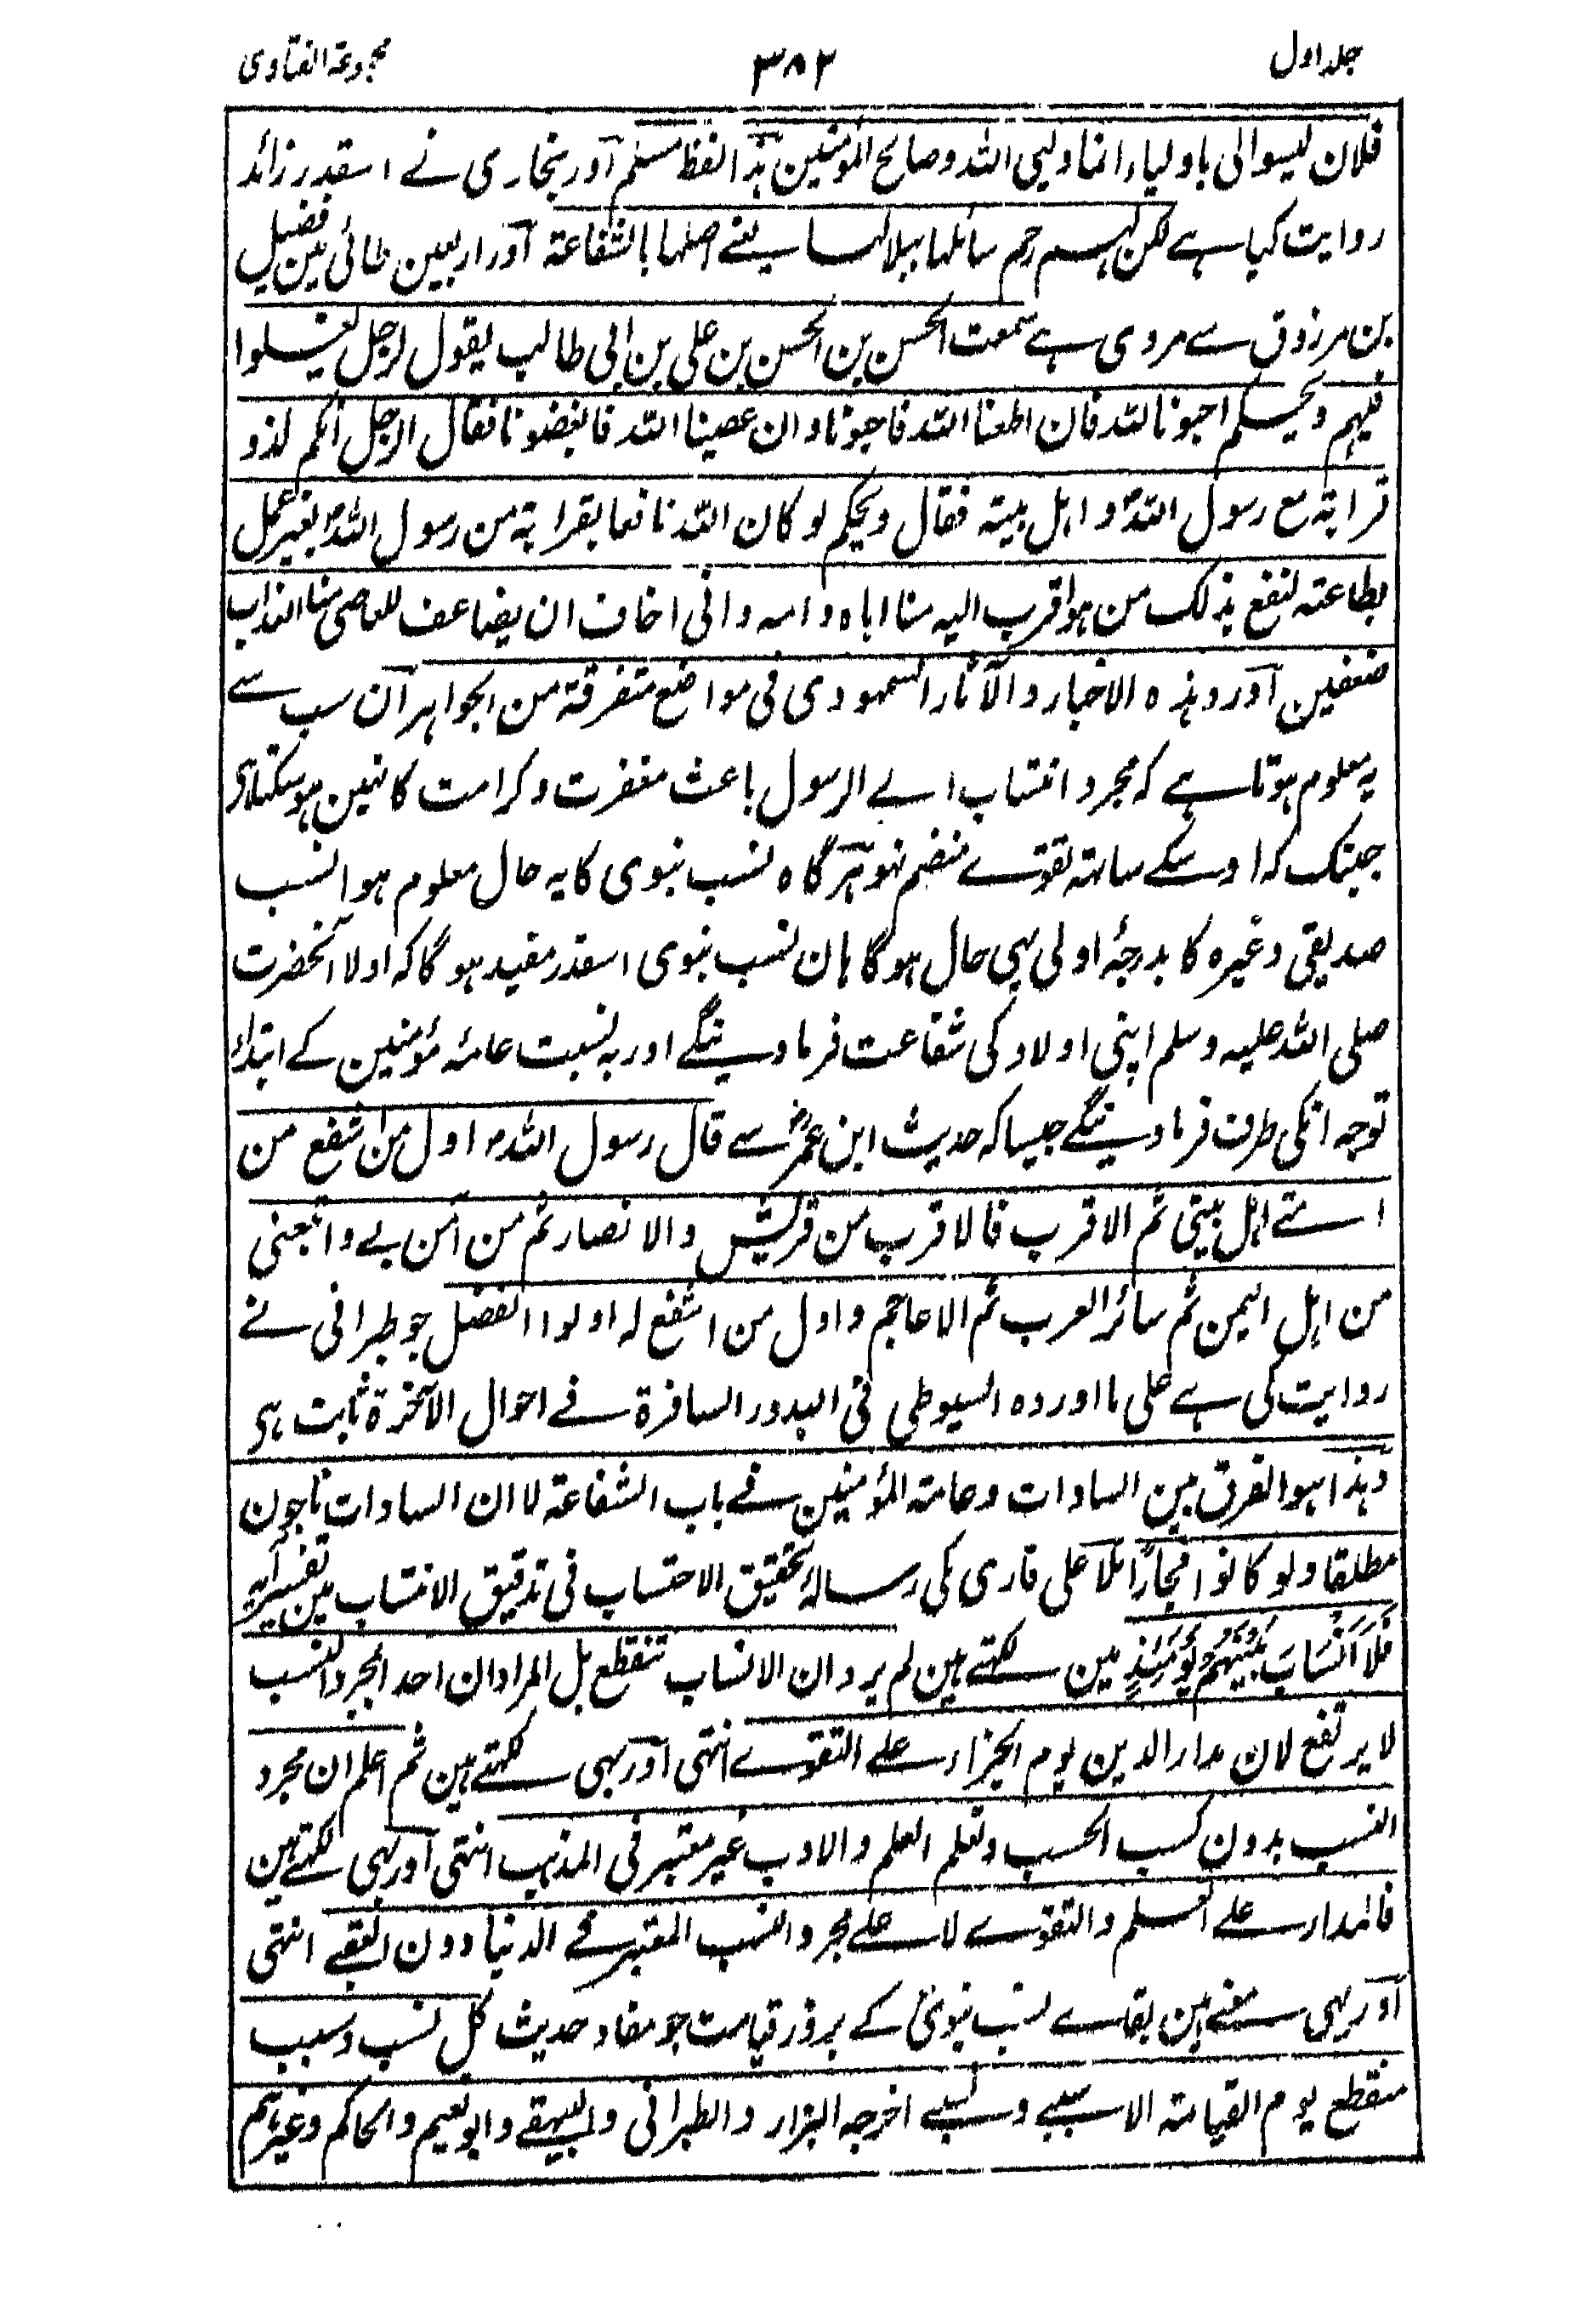 جلد اول ۳۸۲ مجموعۃ الفتاوی
فلان لیسوا لی باولیاء انما ولیی اللہ وصالح المؤمنین ہذا لفظ مسلم اور بخاری نے اسقدر زائد
روایت کیا ہے لکن لہم رحم سابلہا ببلالہا یعنے اصلہا بالشفاعۃ اور اربعین طائی مین فضیل
بن مرزوق سے مروی ہے سمعت الحسن بن الحسن بن علی بن ابی طالب یقول لرجل یغلوا
فیہم ویحکم احبونا للہ فان اطعنا اللہ فاحبونا وان عصینا اللہ فابغضونا فقال الرجل انکم لذو
قرابۃ مع رسول اللہؐ و اہل بیتہ فقال ویحکم لو کان اللہ نافعا بقرابۃ من رسول اللہؐ بغیر عمل
بطاعتہ لنفع بذلک من ہو اقرب الیہ منا اباہ و امہ وانی اخاف ان یضاعف للعاصی منا العذاب
ضعفین اورد ہذہ الاخبار والآثار السمہودی فی مواضع متفرقۃ من الجواہر ان سب سے
یہ معلوم ہوتا ہے کہ مجرد انتساب الے الرسول باعث مغفرت وکرامت کا نہین ہو سکتا ہی
جبتک کہ اوسکے ساتہ تقوے منضم نہو ہرگاہ نسب نبوی کا یہ حال معلوم ہوا نسب
صدیقی وغیرہ کا بدرجۂ اولی یہی حال ہوگا ہان نسب نبوی اسقدر مفید ہوگا کہ اولا آنحضرت
صلی اللہ علیہ وسلم اپنی اولاد کی شفاعت فرماوینگے اور بہ نسبت عامۂ مؤمنین کے ابتداءً
توجہ انکی طرف فرماوینگے جیسا کہ حدیث ابن عمرؓ سے قال رسول اللہؐ اول من اشفع من
امتے اہل بیتی ثم الاقرب فالاقرب من قریش والانصار ثم من آمن بے واتبعنی
من اہل الیمن ثم سائر العرب ثم الاعاجم و اول من اشفع لہ اولوا الفضل جو طبرانی نے
روایت کی ہے علی ما اوردہ السیوطی فی البدور السافرۃ فے احوال الآخرۃ ثابت ہی
وہذا ہو الفرق بین السادات وعامۃ المؤمنین فے باب الشفاعۃ لا ان السادات ناجون
مطلقا ولو کانوا فجارا ملا علی قاری کی رسالۂ تحقیق الاحتساب فی تدقیق الانتساب مین تفسیر آیہ
فَلَا اَنْسَابَ بَیْنَہُمْ یَوْمَئِذٍ مین لکہتے ہین لم یرد ان الانساب تنقطع بل المراد ان احدا بمجرد النسب
لا یرتفع لان مدار الدین یوم الجزاء علے التقوے انتہی اور یہی لکہتے ہین ثم اعلم ان مجرد
النسب بدون کسب الحسب وتعلم العلم والادب غیر معتبر فی المذہب انتہی اور یہی لکہتے ہین
فالمدار علے العلم والتقوے لا علے مجرد النسب المعتبر فے الدنیا دون العقبے انتہی
اور یہی معنے ہین بقاے نسب نبویؐ کے بروز قیامت جو مفاد حدیث کل نسب وسبب
منقطع یوم القیامۃ الا سببے ونسبے اخرجہ البزار والطبرانی والبیہقے وابو نعیم والحاکم وغیرہم